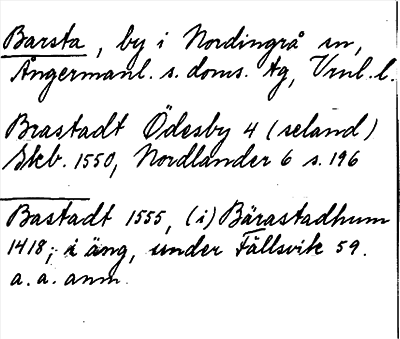 Barsta, by i Nordingrå sn,
Ångermanl. s. doms. tg, Vrnl. l.
Brastadt Ödesby 4 (seland)
Skb. 1550, Nordlander 6 s. 196
Bastadt 1555, (i) Bärastadhum
1418; i äng, under Fällsvik 59.
a. a. anm.